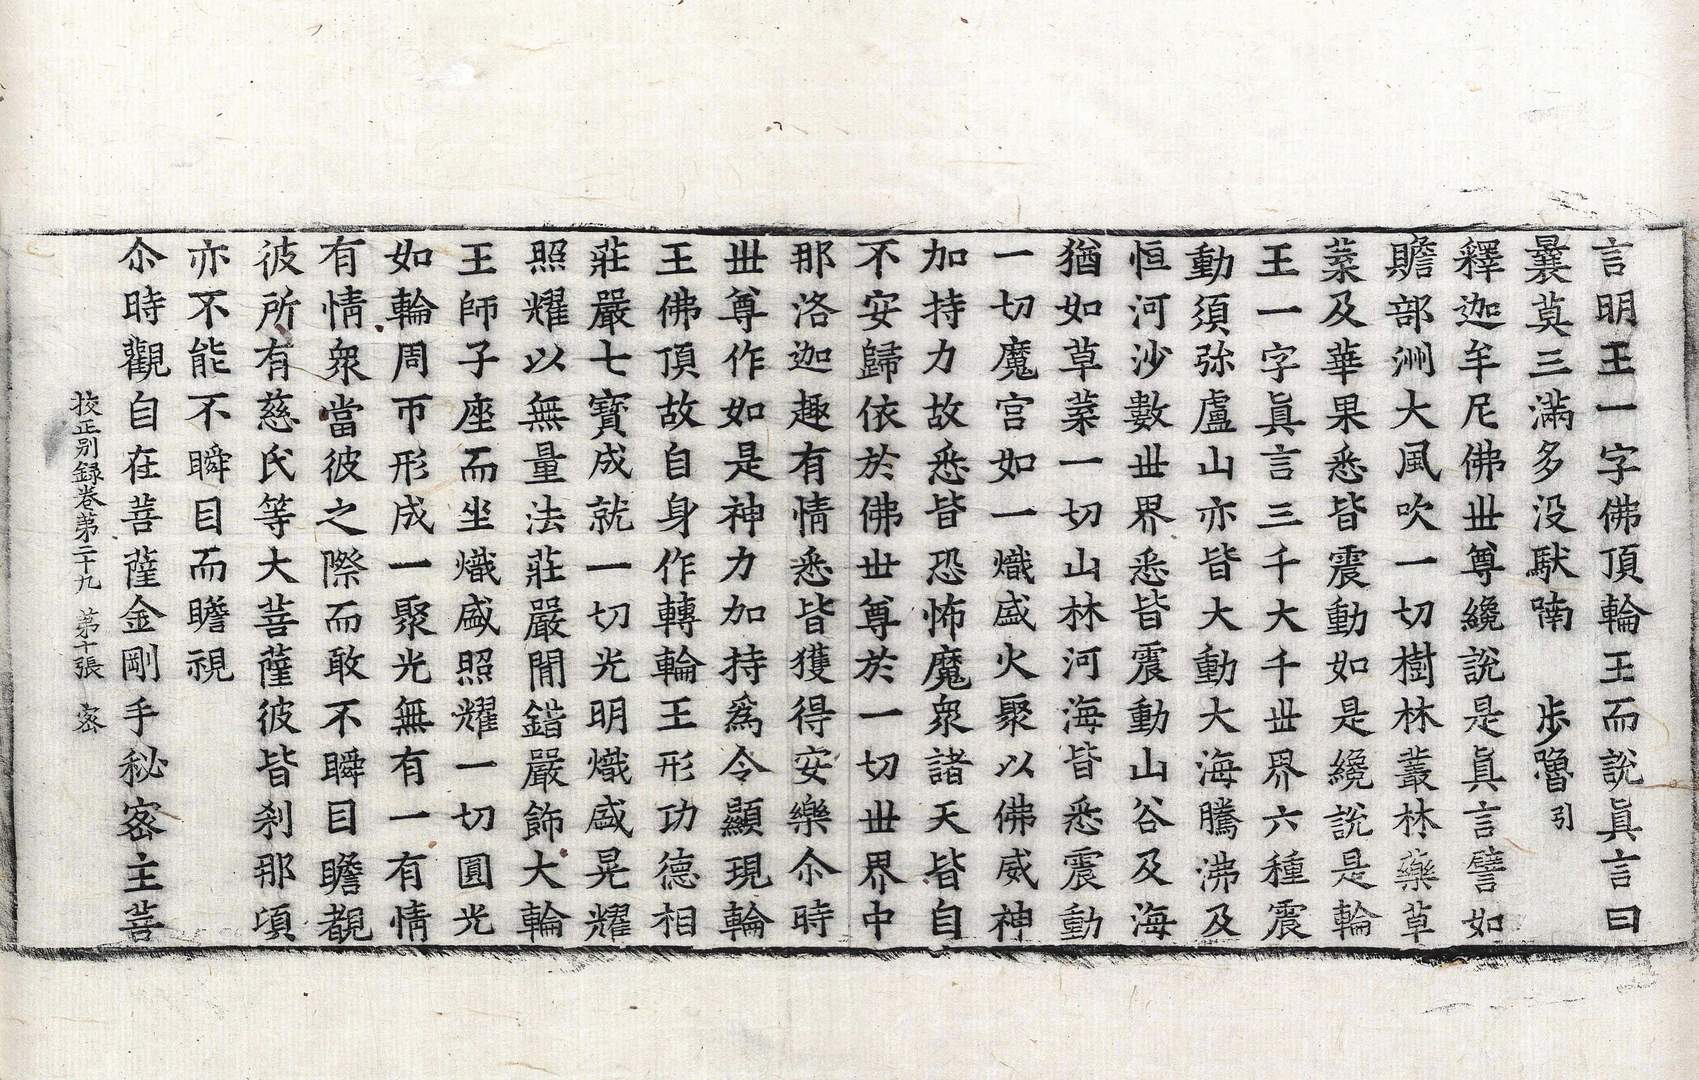 言明王一字佛頂輪王而說眞言曰
曩莫三滿多没馱喃　步嚕引
釋迦牟尼佛世尊纔說是眞言譬如
贍部洲大風吹一切樹林叢林藥草
葉及華果悉皆震動如是纔說是輪
王一字眞言三千大千世界六種震
動須弥盧山亦皆大動大海騰沸及
恒河沙數世界悉皆震動山谷及海
猶如草葉一切山林河海皆悉震動
一切魔宮如一熾盛火聚以佛威神
加持力故悉皆恐怖魔衆諸天皆自
不安歸依於佛世尊於一切世界中
那洛迦趣有情悉皆獲得安樂尒時
世尊作如是神力加持爲令顯現輪
王佛頂故自身作轉輪王形功德相
莊嚴七寶成就一切光明熾盛晃耀
照耀以無量法莊嚴閒錯嚴飾大輪
王師子座而坐熾盛照耀一切圓光
如輪周帀形成一聚光無有一有情
有情衆當彼之際而敢不瞬目瞻覩
彼所有慈氏等大菩薩彼皆刹那頃
亦不能不瞬目而瞻視
尒時觀自在菩薩金剛手秘密主菩
挍正别録卷第二十九　第十張　密